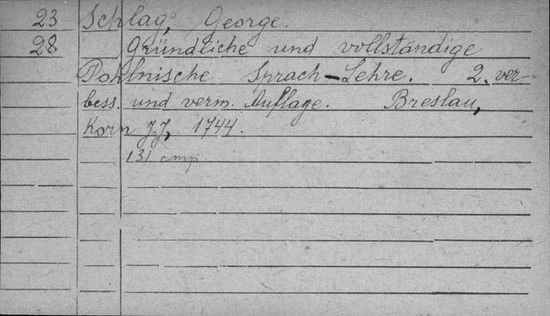 23 Schlag, George.
28 Gründliche und vollständige
Pohlnische Sprach-Lehre. 2. ver-
bess. und verm. Auflage. Breslau,
Korn J.J., 1744.
131 стр